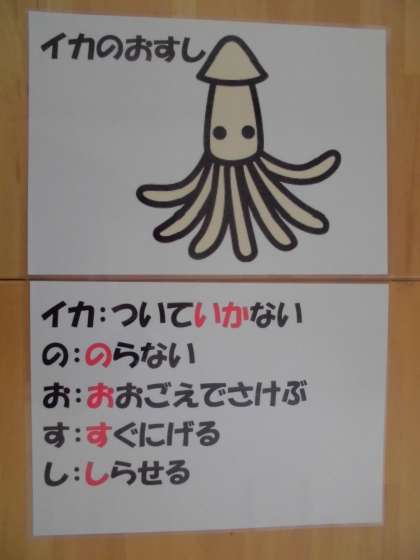 イカのおすし
イカ:ついていかない
の:のらない
お:おおごえでさけぶ
す:すぐにげる
し:しらせる